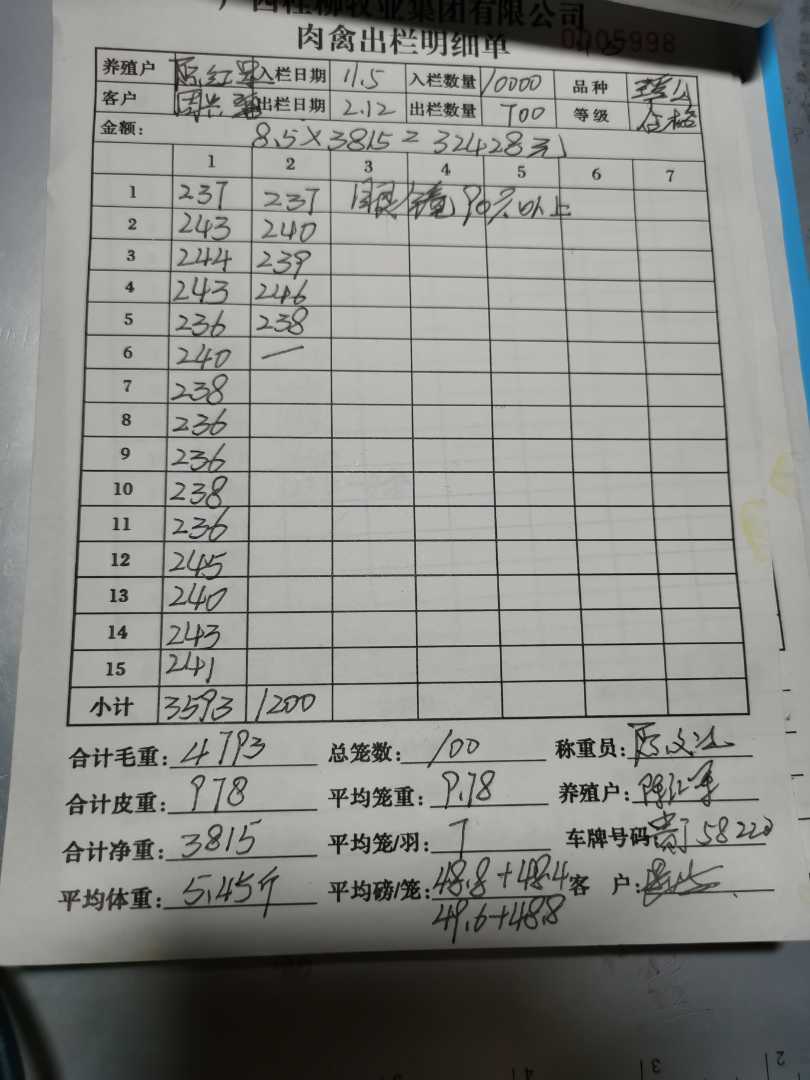 广西桂柳牧业集团有限公司
肉禽出栏明细单 0005998
养殖户 入栏日期 11.5 入栏数量 10000 品种
客户 出栏日期 2.12 出栏数量 700 等级 合格
金额: 8.5×3815=32428元
1 2 3 4 5 6 7
1 237 237 90%以上
2 243 240
3 244 239
4 243 246
5 236 238
6 240 —
7 238
8 236
9 236
10 238
11 236
12 245
13 240
14 243
15 241
小计 3593 1200
合计毛重: 4793 总笼数: 100 称重员:
合计皮重: 978 平均笼重: 9.78 养殖户:
合计净重: 3815 平均笼/羽: 7 车牌号码: 58220
平均体重: 5.45斤 平均磅/笼: 48.8+48.4 客 户:
49.6+48.8